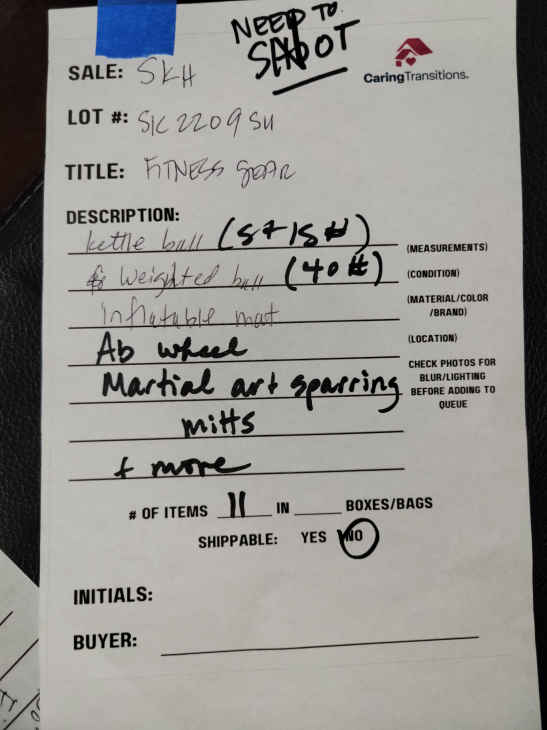 NEED TO
SHOOT
CaringTransitions.
SALE: SKH
LOT #: SIC2209SU
TITLE: FITNESS GEAR
DESCRIPTION:
kettle ball (5 + 15 #)
(MEASUREMENTS)
Weighted ball (40 #)
(CONDITION)
Inflatable mat
(MATERIAL/COLOR
/BRAND)
Ab wheel
(LOCATION)
Martial art sparring
mitts
+ more
CHECK PHOTOS FOR
BLUR/LIGHTING
BEFORE ADDING TO
QUEUE
# OF ITEMS 11 IN ____ BOXES/BAGS
SHIPPABLE: YES NO
INITIALS:
BUYER: